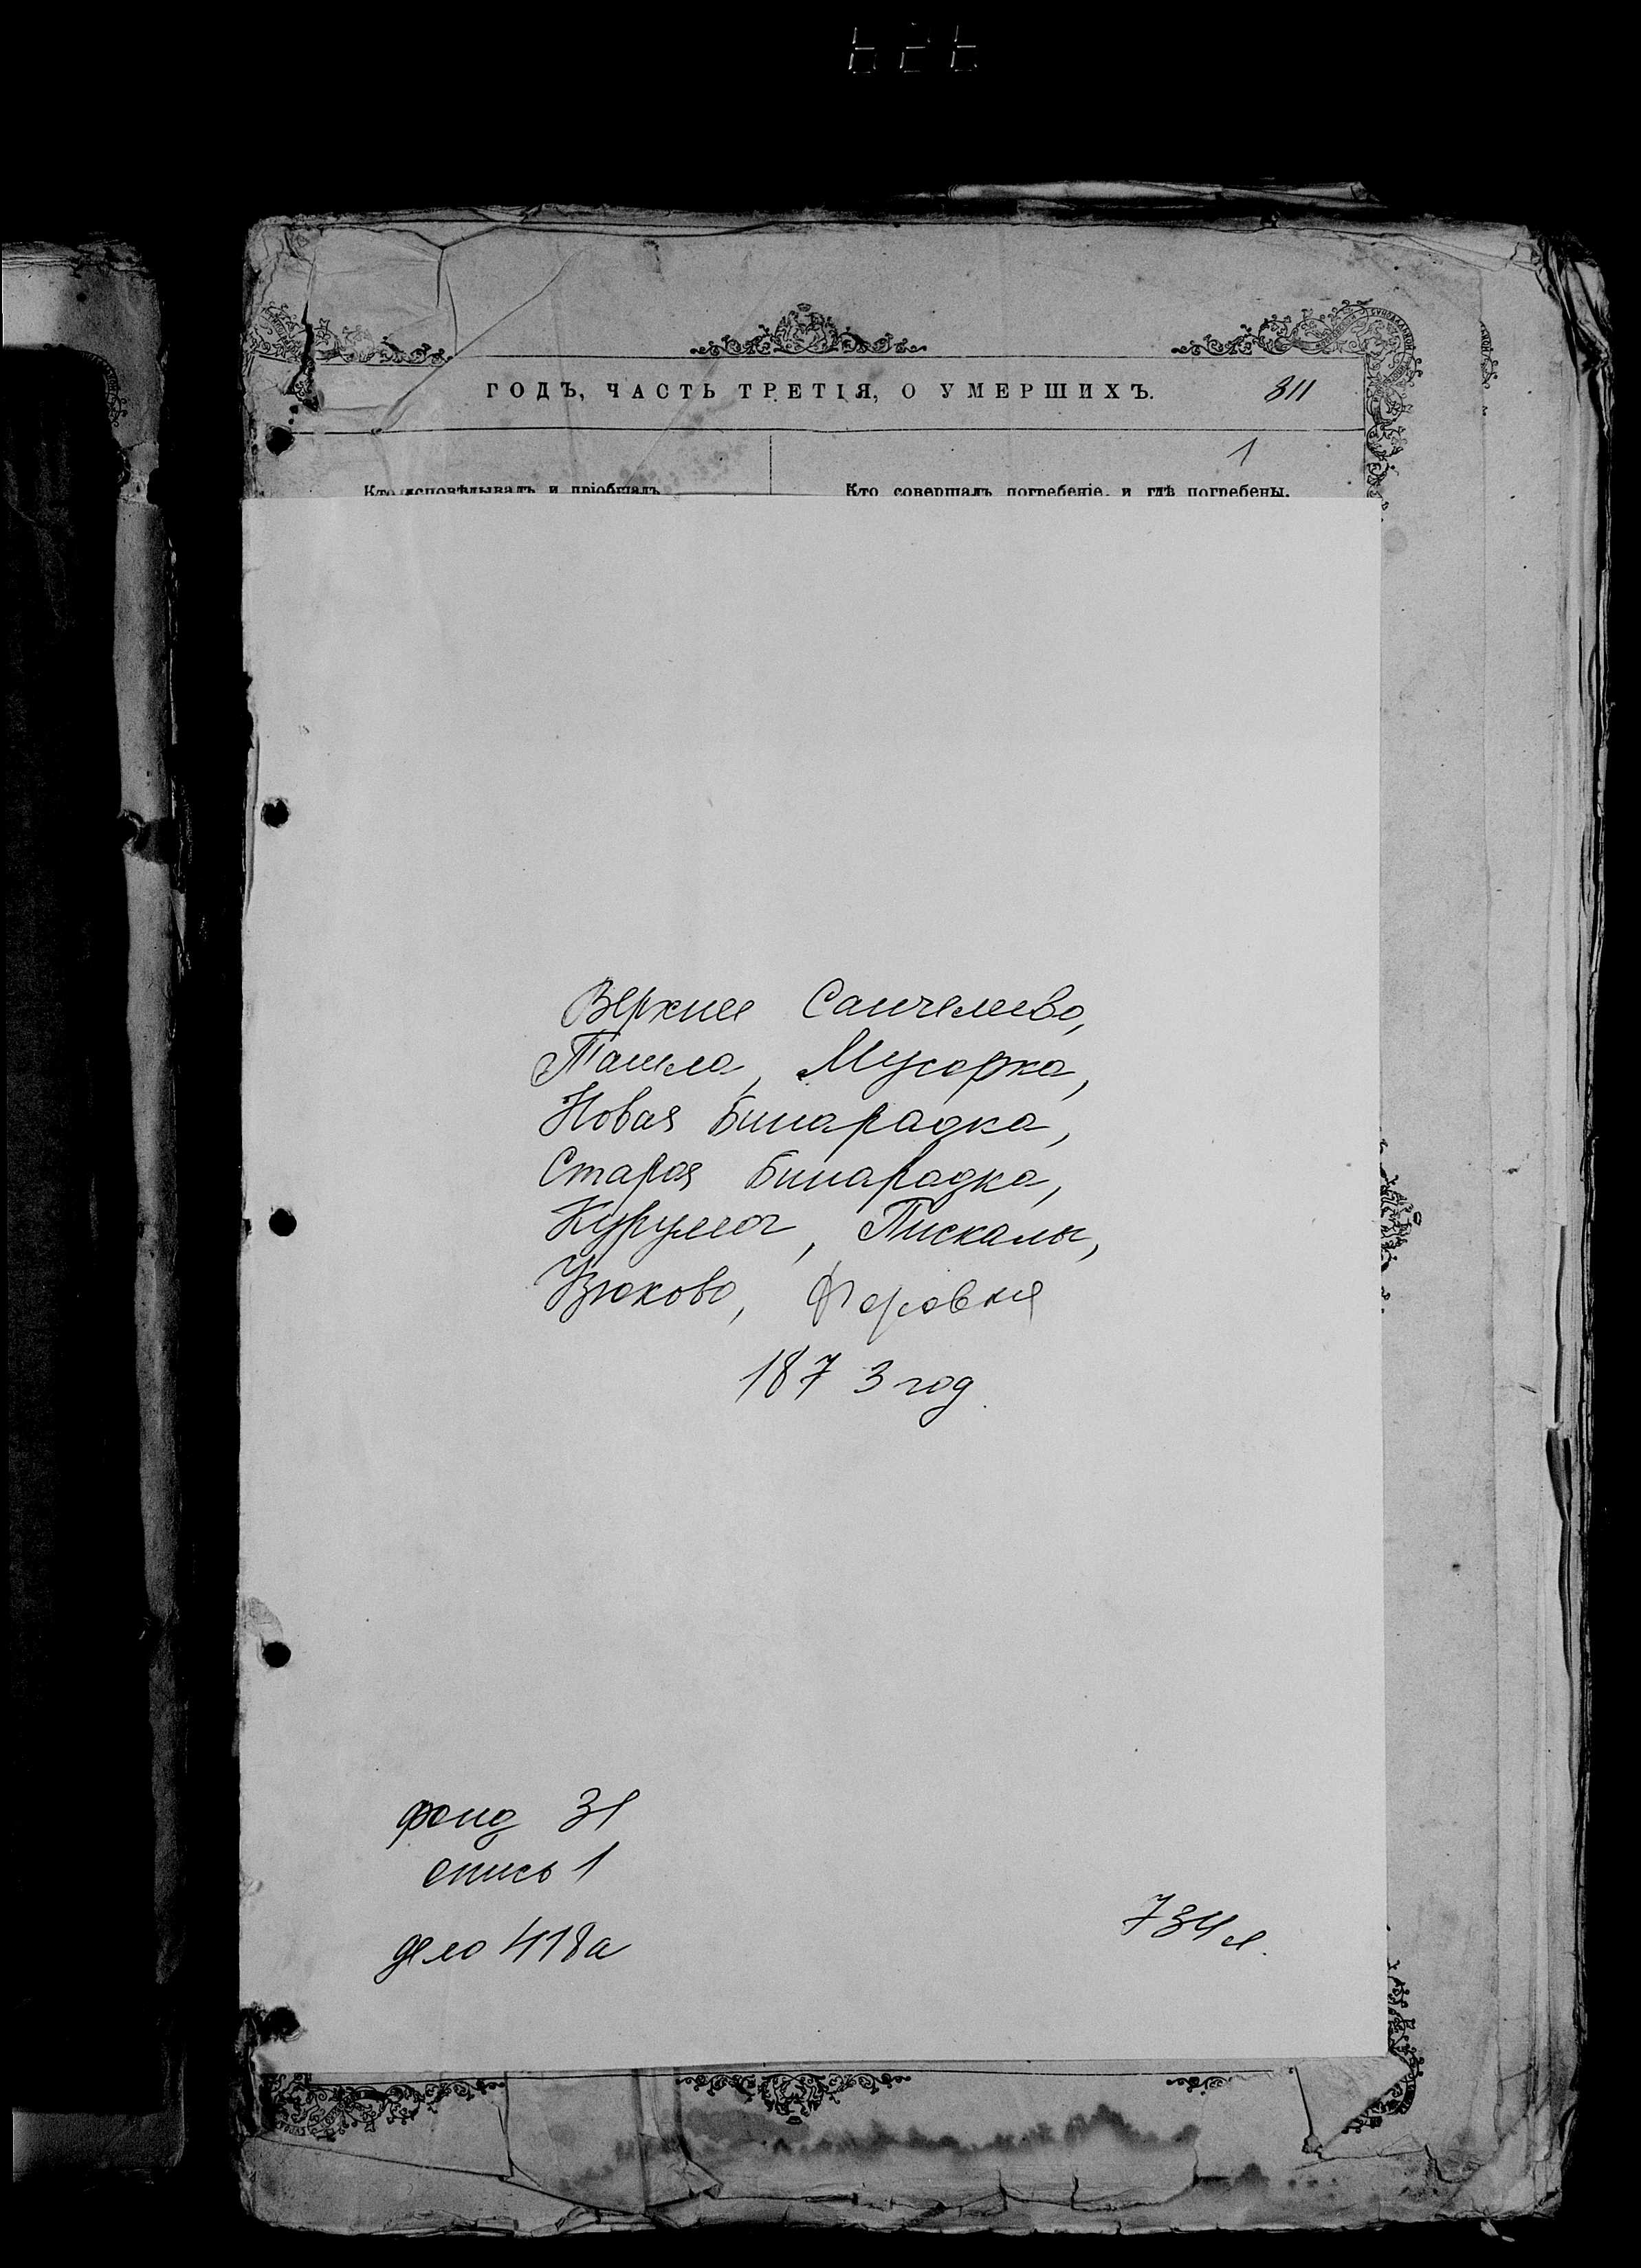 ГОДЪ, ЧАСТЬ ТРЕТІЯ, О УМЕРШИХЪ. 311
1
Кто исповѣдывалъ и пріобщалъ Кто совершалъ погребеніе, и гдѣ погребены.
Верхнее Санчелеево,
Ташла, Мусорка,
Новая Бинарадка,
Старая Бинарадка,
Курумоч, Пискалы,
Узюково,
1873 год.
фонд 31
опись 1
дело 418а
734 л.